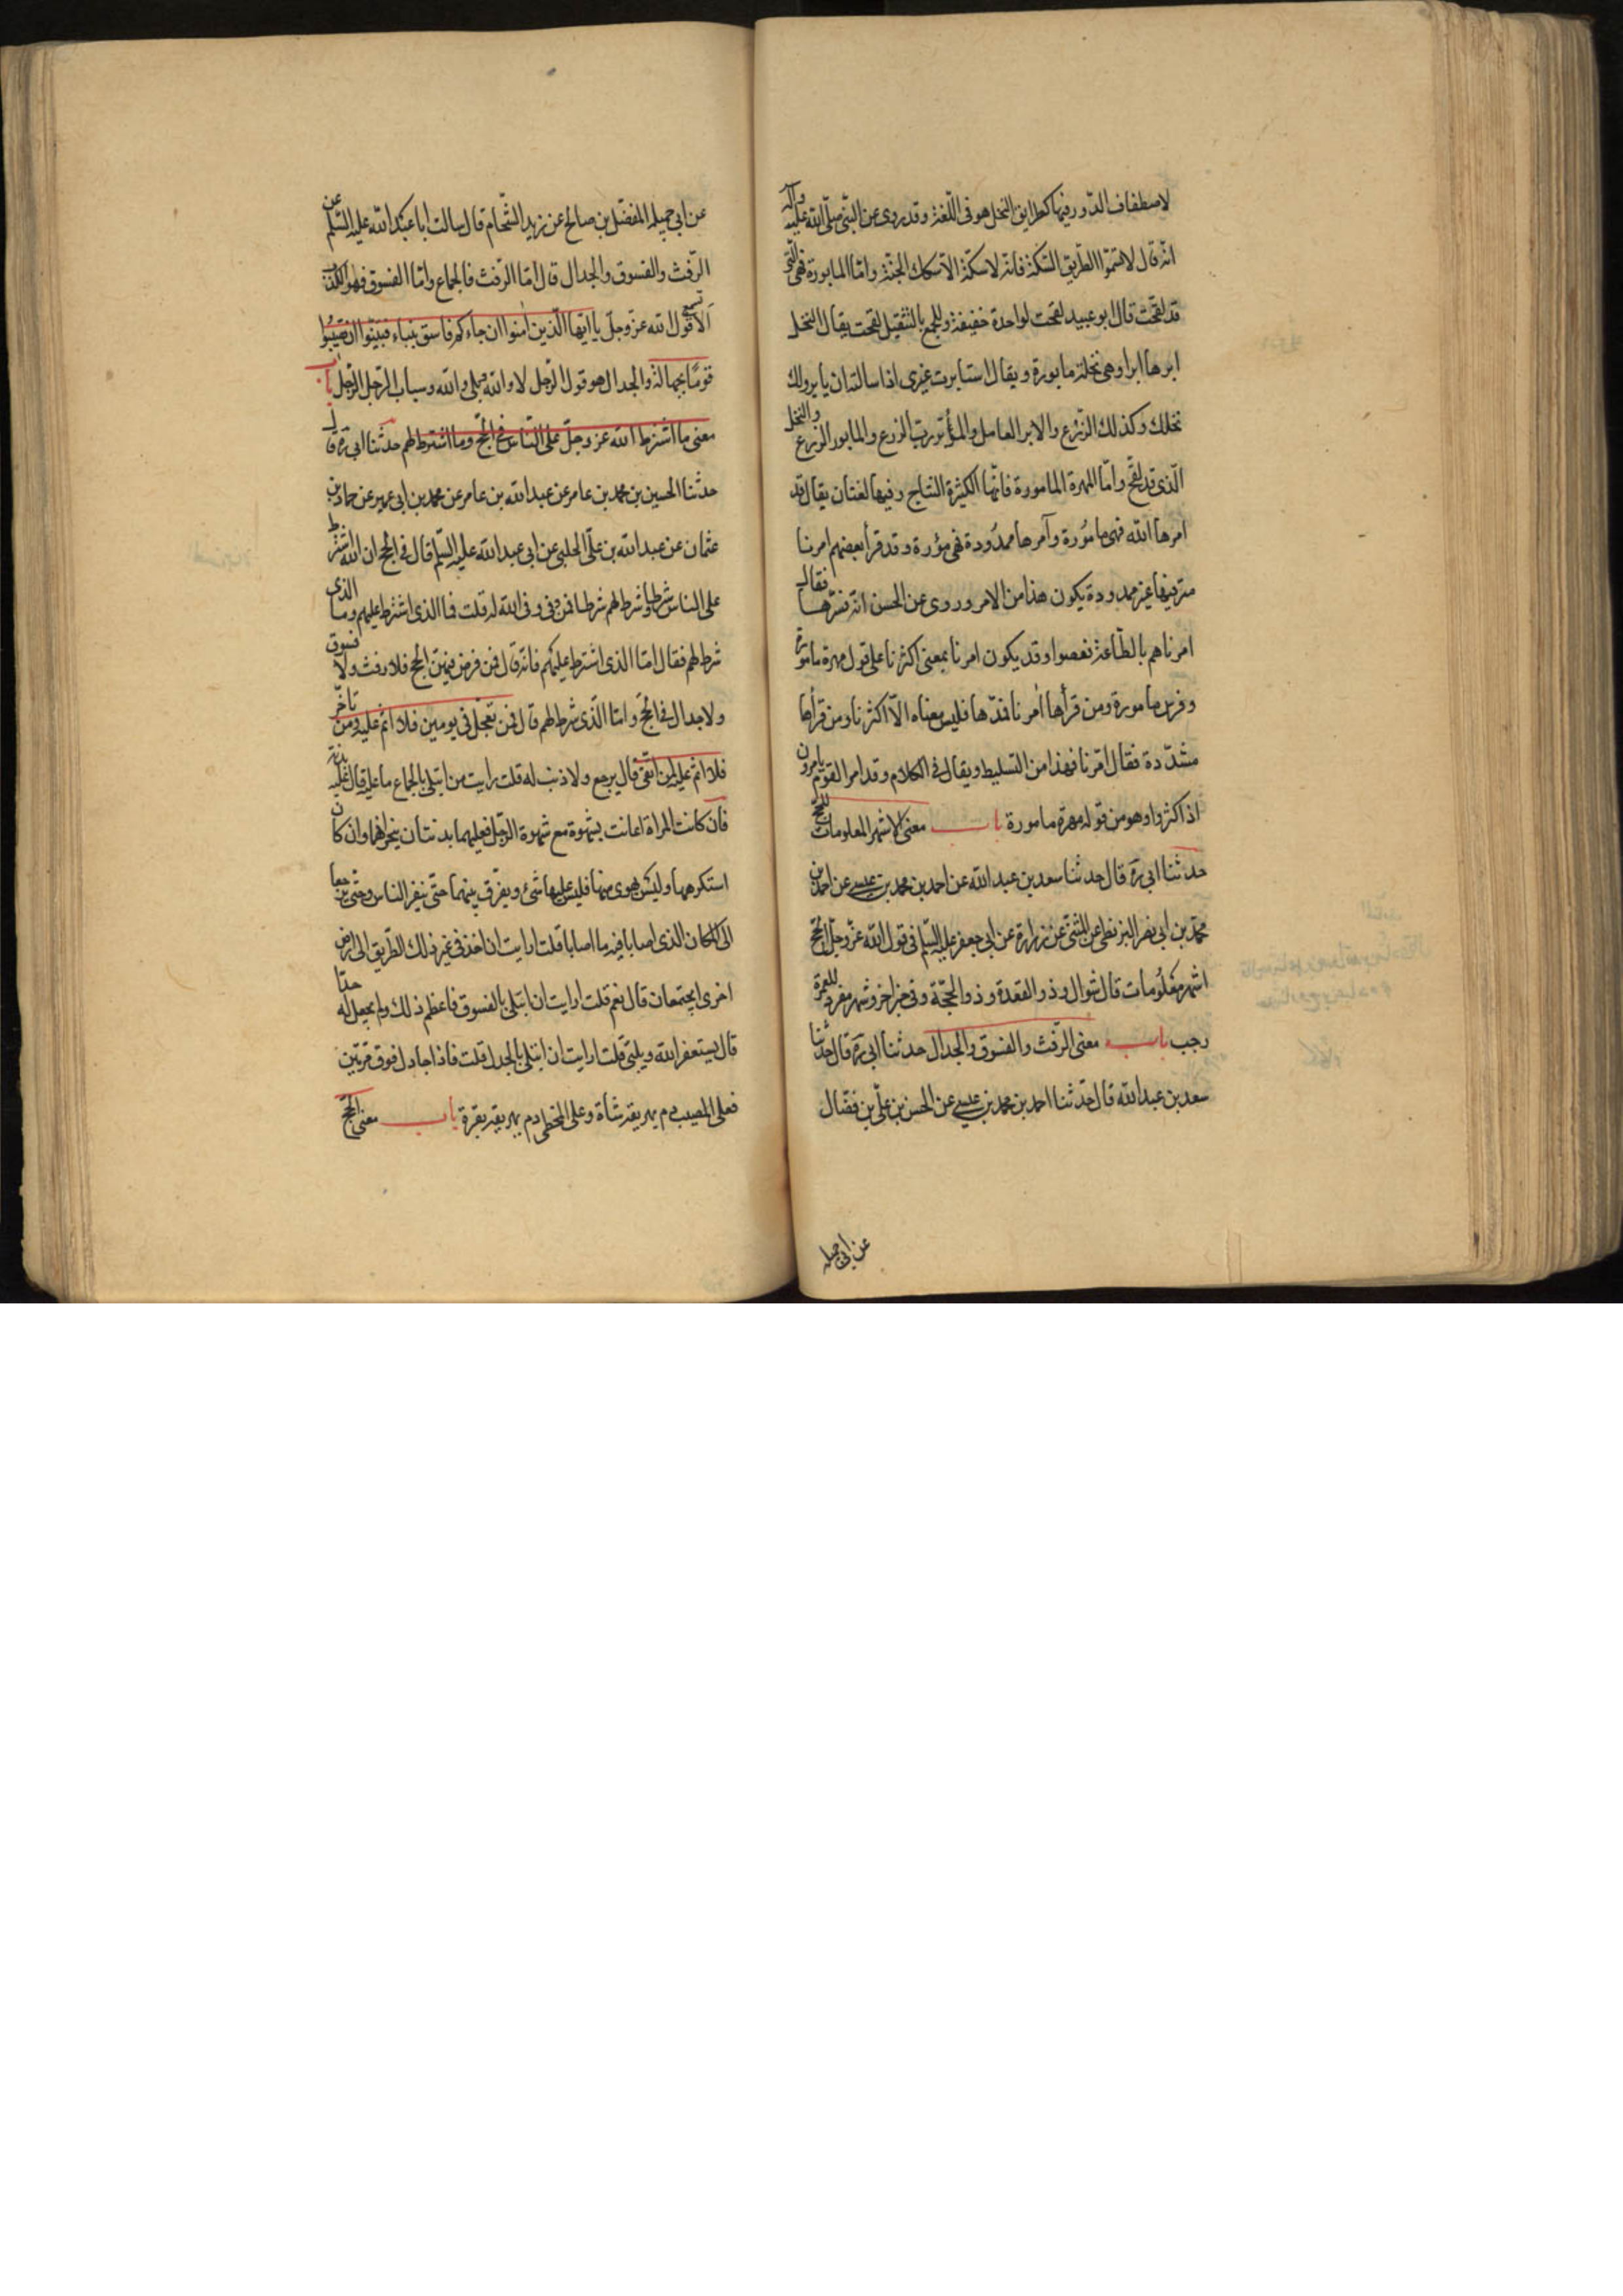 لاصطفاف الدّور فيها كطرايق النخل هو فى اللّغة وقد روى عن النّبى صلّى الله عليه وآله
انّه قال لا تسمّوا الطّريق السّكّة فانّه لا سكّة الاّ سكك الجنّة وامّا المابورة فهى الّتى
قد لقّحت قال ابو عبيد لقحت لواحدة خفيفة وللجمع بالتّثقيل لقّحت يقال النخل
ابرها ابرا وهى نخلة مابورة ويقال استابرت غيرى اذا سالته ان يابر ولك
نخلك وكذلك الزّرع والابر العامل والمؤتبر ربّ الزرع والمابور الزّرع والنخل
الّذى قد لقّح وامّا المهرة المامورة فانّها الكثيرة النتاج وفيها لغتان يقال قد
امرها الله فهى مامورة وآمرها ممدودة فهى مؤمرة وقد قرأ بعضهم امرنا
مترفيها غير ممدودة يكون هذا من الامر وروى عن الحسن انّه فسّرها فقال
امرناهم بالطّاعة فعصوا وقد يكون امرنا بمعنى اكثرنا على قول مهرة مامورة
وفرس مامورة ومن قرأها آمرنا فمدّها فليس معناه الاّ اكثرنا ومن قرأها
مشدّدة فقال امّرنا فهذا من التسليط ويقال فى الكلام وقد امر القوم يامرون
اذا كثروا وهو من قوله مهرة مامورة باب معنى الاشهر المعلومات للحجّ
حدثنا ابى ره قال حدثنا سعد بن عبد الله عن احمد بن محمد بن عيسى عن احمد بن
محمّد بن ابى نصر البزنطى عن المثنّى عن زرارة عن ابى جعفر عليه السّلم فى قول الله عزّ وجلّ الحجّ
اشهر معلومات قال شوال وذو القعدة وذو الحجّة وفى خبر اخر وشهر مفرد للعمرة
رجب باب معنى الرّفث والفسوق والجدال حدثنا ابى ره قال حدّثنا
سعد بن عبد الله قال حدّثنا احمد بن محمد بن عيسى عن الحسن بن علّى بن فضّال
عن ابى جميله
عن ابى جميله المفضّل بن صالح عن زيد الشّحام قال سالت ابا عبد الله عليه السّلم عن
الرّفث والفسوق والجدال قال امّا الرّفث فالجماع وامّا الفسوق فهو الكذب
الا تسمع قول الله عزّ وجلّ يا ايّها الّذين امنوا ان جاءكم فاسق بنباء فتبيّنوا ان تصيبوا
قومًا بجهالة والجدال هو قول الرّجل لا والله وبلى والله وسباب الرّجل الرّجل باب
معنى ما اشترط الله عزّ وجلّ على النّاس فى الحجّ وما اشترط لهم حدثنا ابى ره قال
حدثنا الحسين بن محمد بن عامر عن عبد الله بن عامر عن محمد بن ابى عمير عن حماد بن
عثمان عن عبد الله بن علّى الحلبى عن ابى عبد الله عليه السّلم قال فى الحج ان الله اشترط
على الناس شرطا وشرط لهم شرطا فمن وفى وفى الله له قلت فما الذى اشترط عليهم وما الذى
شرط لهم فقال امّا الذى اشترط عليهم فانّه قال فمن فرض فيهنّ الحج فلا رفث ولا فسوق
ولا جدال فى الحجّ وامّا الّذى شرط لهم قال فمن تعجّل فى يومين فلا اثم عليه ومن تاخّر
فلا اثم عليه لمن اتّقى قال يرجع ولا ذنب له قلت رايت من ابتلى بالجماع ما عليه قال عليه بدنة
فان كانت المراة اعانت بشهوة مع شهوة الرّجل فعليهما بدنتان ينحرانهما وان كان
استكرهها وليس بهوى منها فليس عليها شئ ويفرّق بينهما حتّى ينفر الناس وحتّى يرجعا
الى المكان الذى اصابا فيه ما اصابا قلت ارايت ان اخذ فى غير ذلك الطّريق الى ارض
اخرى ايجتمعان قال نعم قلت ارايت ان ابتلى بالفسوق فاعظم ذلك ولم يجعل له حدّا
قال يستغفر الله ويلبّى قلت ارايت ان ابتلى بالجدال قلت فاذا جادل فوق مرّتين
فعلى المصيب دم يهريقه شاة وعلى المخطى دم يهريقه بقرة باب معنى الحجّ